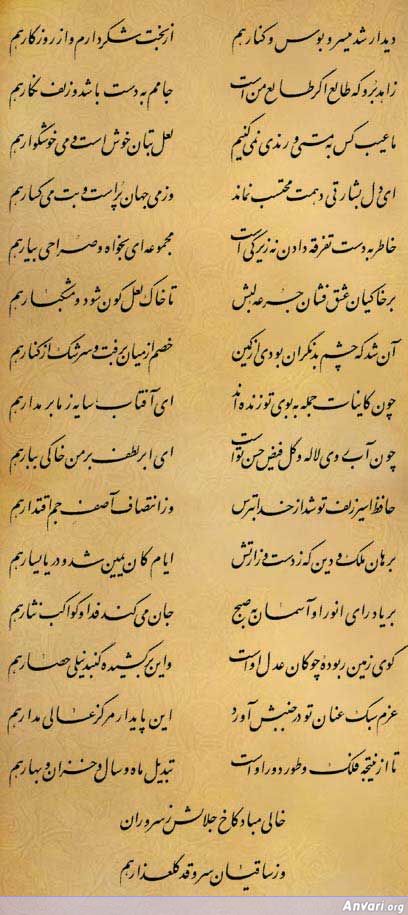 دیدار شد میسر و بوس و کنار هم از بخت شکر دارم و از روزگار هم
زاهد برو که طالع اگر طالع من است جامم به دست باشد و زلف نگار هم
ما عیب کس به مستی و رندی نمی کنیم لعل بتان خوش است و می خوشگوار هم
ای دل بشارتی دهمت محتسب نماند وز می جهان پر است و بت می گسار هم
خاطر به دست تفرقه دادن نه زیرکی است مجموعه ای بخواه و صراحی بیار هم
بر خاکیان عشق فشان جرعه لبش تا خاک لعل گون شود و مشکبار هم
آن شد که چشم بد نگران بودی از کمین خصم از میان برفت و سرشک از کنار هم
چون کاینات جمله به بوی تو زنده اند ای آفتاب سایه ز ما بر مدار هم
چون آب روی لاله و گل فیض حسن تو است ای ابر لطف بر من خاکی ببار هم
حافظ اسیر زلف تو شد از خدا بترس وز انتصاف آصف جم اقتدار هم
برهان ملک و دین که ز دست وزارتش ایام کان یمین شد و دریا یسار هم
بر یاد رای انور او آسمان به صبح جان می کند فدا و کواکب نثار هم
گوی زمین ربوده چوگان عدل او است واین برکشیده گنبد نیلی حصار هم
عزم سبک عنان تو در جنبش آورد این پایدار مرکز عالی مدار هم
تا از نتیجه فلک و طور دور او است تبدیل ماه و سال و خزان و بهار هم
خالی مباد کاخ جلالش ز سروران
وز ساقیان سرو قد گلعذار هم
Anvari.org